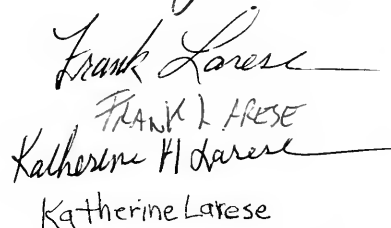 Frank Larese
FRANK LARESE
Katherine H Larese
Katherine Larese